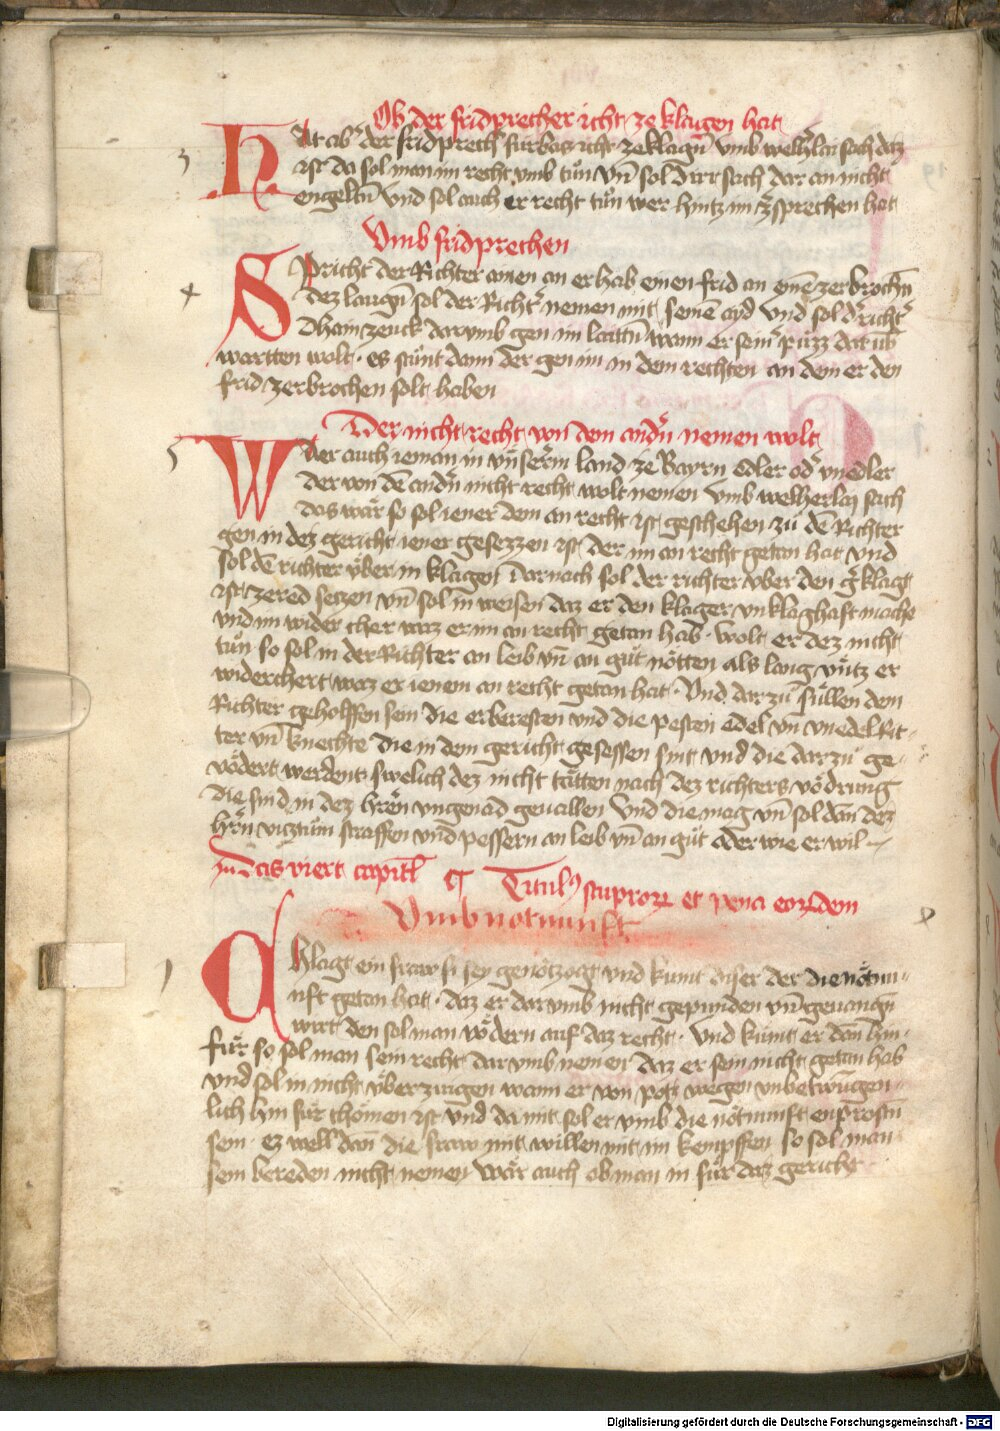 Ob der fridprecher icht ze klagen hat
Hat ab' der fridprech' fürbas icht ze klagn̄ vmb welh'lai sach daz
ist da sol man im recht vmb tůn vn̄ sol Dirr sach dar an nicht
engeltn̄ vnd sol auch er recht tůn wer hintz im ze sprechen hat
Vmb fridprechen
Spricht der Richter ainen an er hab einen frid an ym̄ zerbrochn̄
dez laugn̄ sol der Richt' nemen mit seinē ayd vnd sol d' richt'
Dhain zeuck dar vmb gen im laittn̄ wann er sein' půzz dar vmb
wartten wolt · es stůnt dann der gen im in dem rechten an dem er den
frid zerbrochen solt haben
Der nicht recht von dem andn̄ nemen wolt
Wer auch ieman in vnserm land ze Bayrn edler od' vnedler
der von dē andn̄ nicht recht wolt nemen vmb welherlay sach
das wär so sol iener dem an recht ist geschehen zů dē Richter
gen in dez gericht iener gesezzen ist der im an recht getan hat vnd
sol dē richter vͤber in klagen Darnach sol der richter vber den g'klagt
ist ze red setzen vn̄ sol in weisen daz er den klager vnklaghaft mache
vnd im wider cher waz er im an recht getan hab · wolt er dez nicht
tůn so sol in der Richter an leib vn̄ an gůt nötten als lang vntz er
widerchert waz er ienem an recht getan hat · Vnd darzů süllen dem
Richter geholffen sein die erberesten vnd die pesten edel vn̄ vnedel Rit-
ter vn̄ knechte die in dem gericht gesessen sint vnd die darzů ge-
vödert werdent · swelich dez nicht tätten nach dez richters vödrung
die sind in dez hrēn vngenad geuallen vnd die mag vn̄ sol dan̄ dez
hrn̄ viztům straffen vnd pessern an leib vn̄ an gůt oder wie er wil
Das viert capitl ¶ Titul9 stuprorꝝ et pena eorꝝdem
Vmb notnunft
Chlagt ein fraw si sey genötzogt vnd kumt diser der die nötnu-
nft getan hat · daz er darvmb nicht gepunden vn̄ geuangn̄
wirt den sol man vödern auf daz recht · Vnd kümt er dan̄ hin-
für so sol man sein recht darvmb nemen daz er sein nicht getan hab
vnd sol in nicht vͤberzeugen wann er von potz wegen vnbetwungen-
lich hin für chomen ist vnd da mit sol er vmb die nötnunft enprostn̄
sein · ez well dan̄ die fraw mit willen mit im kempffen so sol man
sein bereden nicht nemen Wär auch ob man in für daz gericht
Digitalisierung gefördert durch die Deutsche Forschungsgemeinschaft - DFG